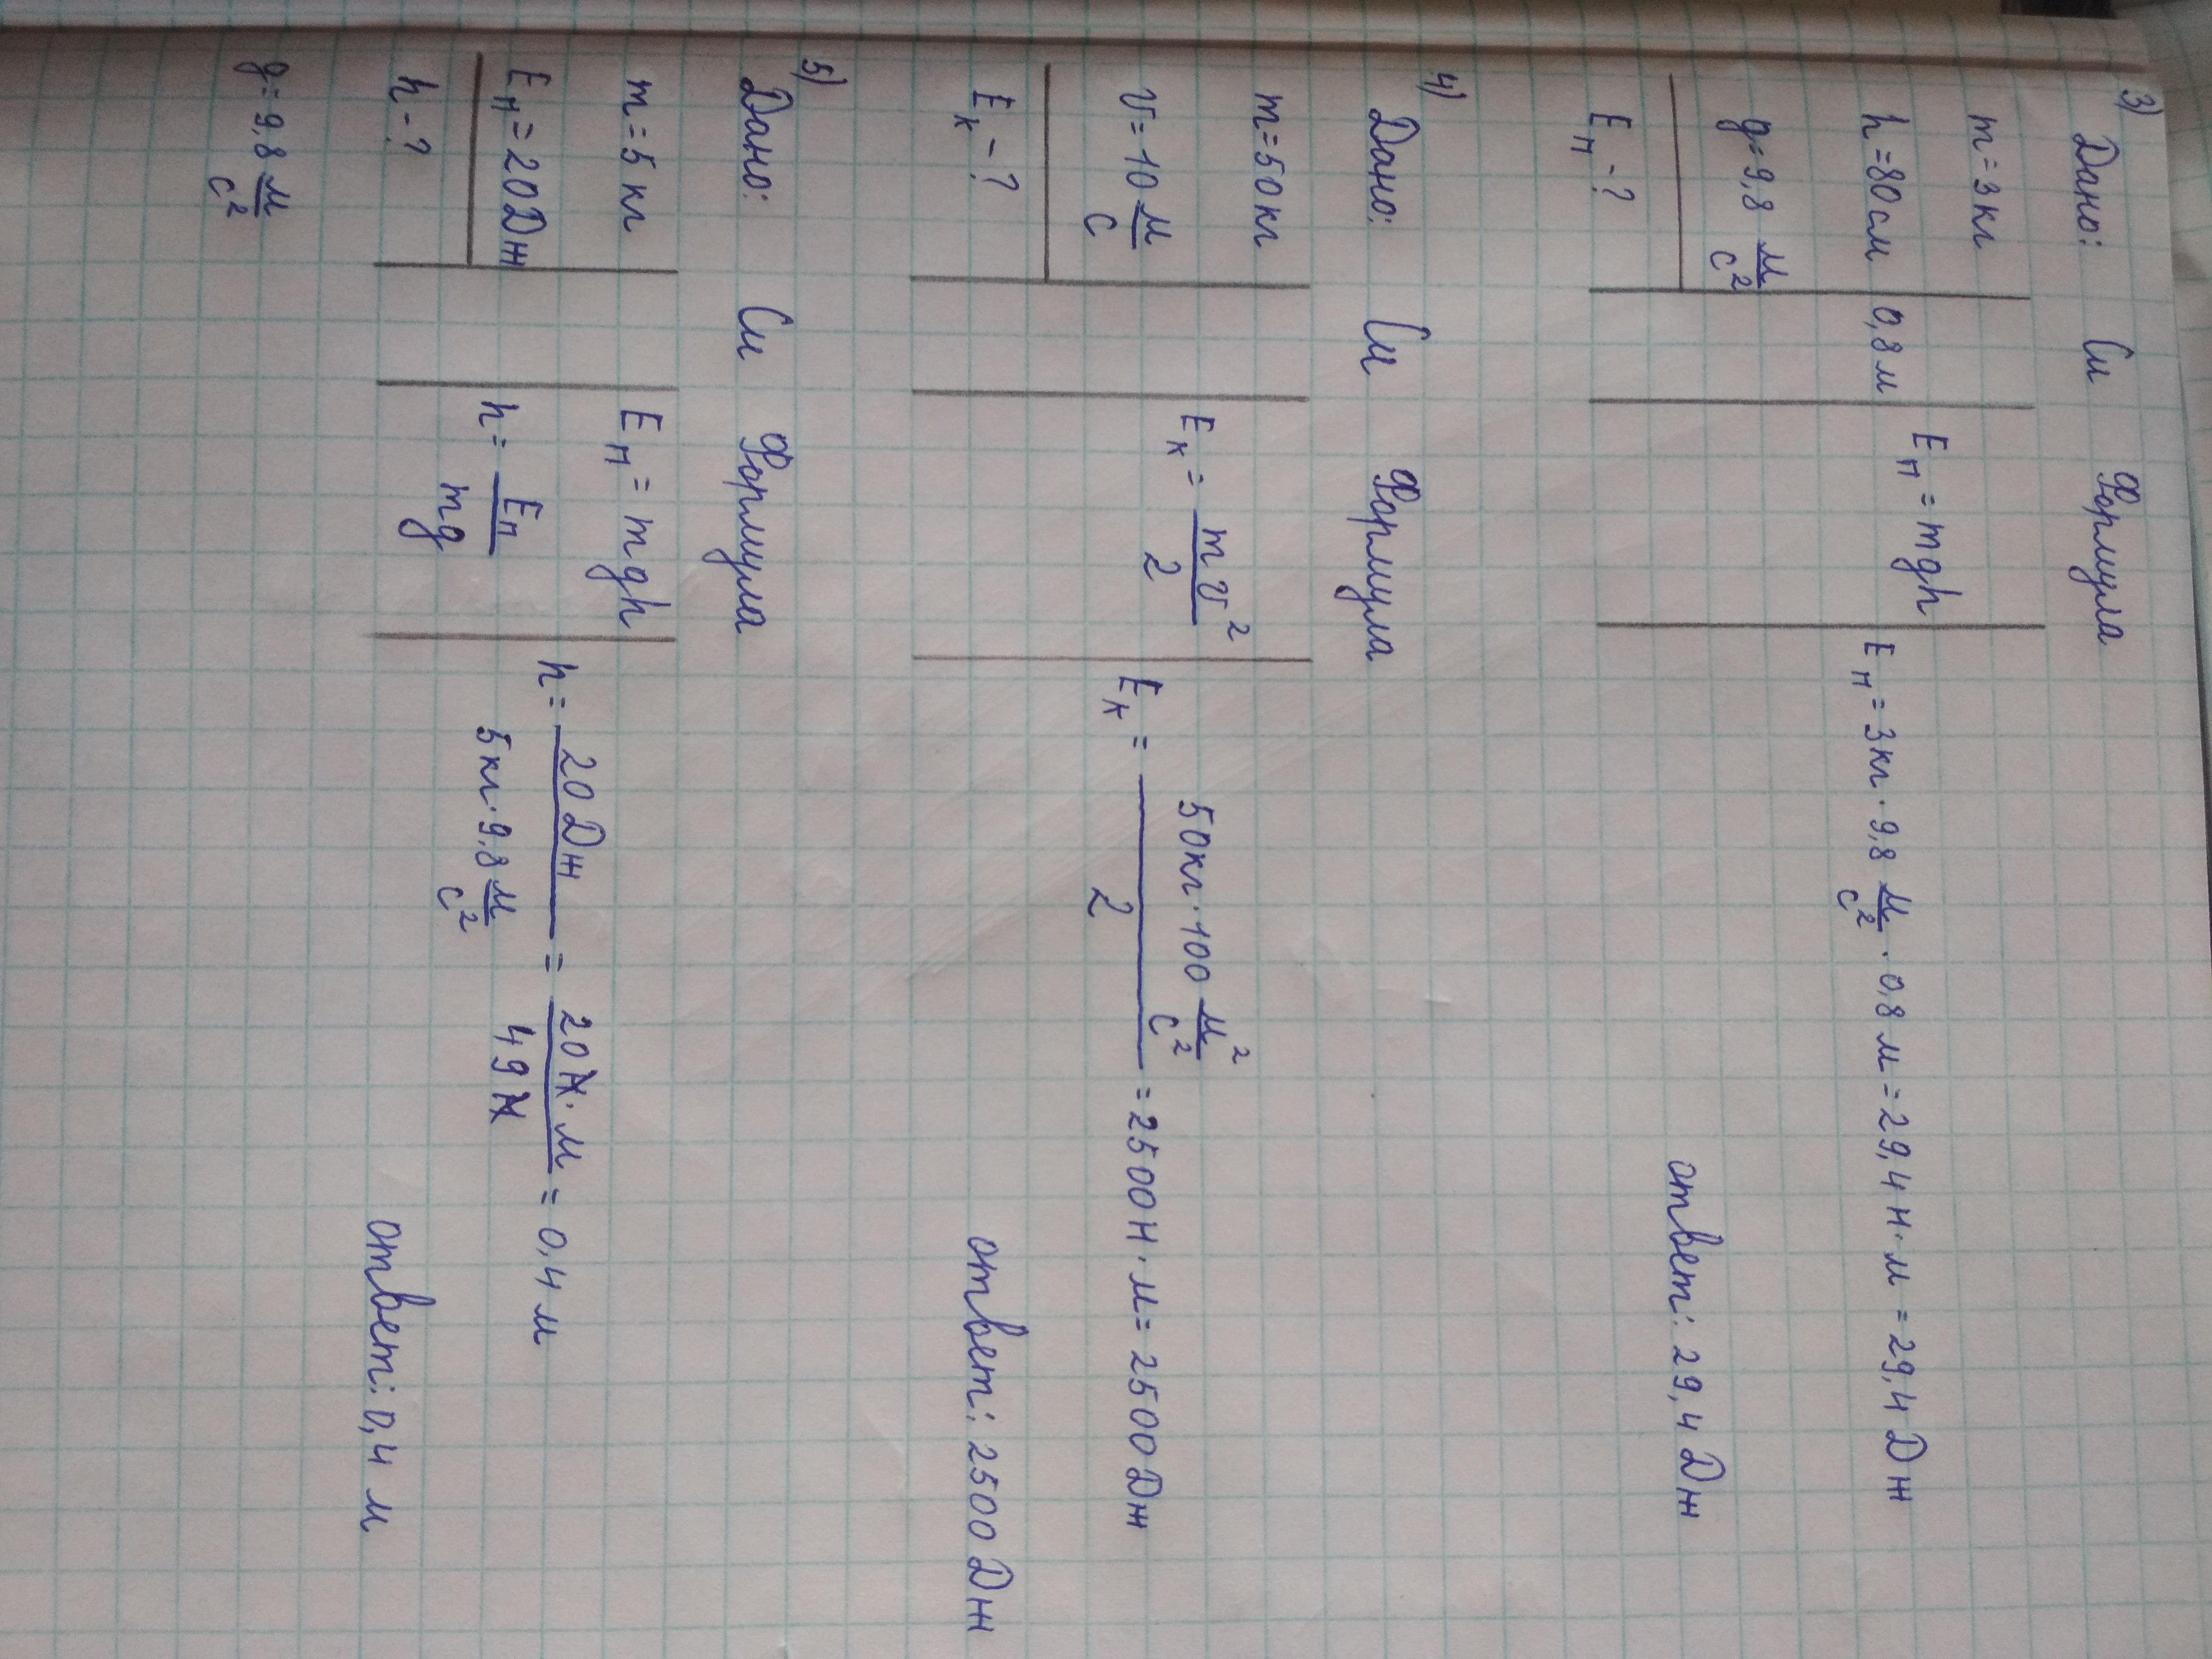 3) Дано: Си Формула
m = 3 кг
h = 80 см 0,8 м Eп = mgh Eп = 3 кг · 9,8 м/с² · 0,8 м = 29,4 Н · м = 29,4 Дж
g = 9,8 м/с²
Eп - ? ответ: 29,4 Дж
4) Дано: Си Формула
m = 50 кг
v = 10 м/с Eк = mv²/2 Eк = 50 кг · 100 м²/с² / 2 = 2500 Н · м = 2500 Дж
Eк - ? ответ: 2500 Дж
5) Дано: Си Формула
m = 5 кг Eп = mgh
Eп = 20 Дж h = Eп/mg h = 20 Дж / 5 кг · 9,8 м/с² = 20 Н · м / 49 Н = 0,4 м
h - ? ответ: 0,4 м
g = 9,8 м/с²